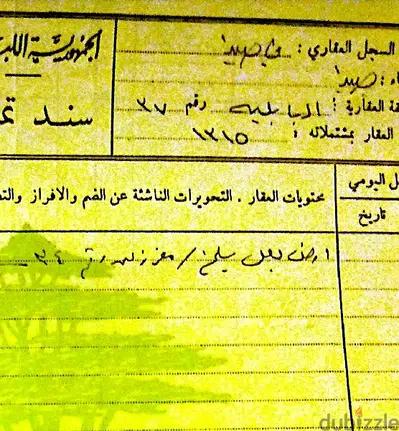 الجمهورية اللب
سند تم
السجل العقاري : صيدا
اء : صيدا
قة العقارية : البابلية رقم ٣٧
العقار بمشتملاته : ١٣١٥
ل اليومي
تاريخ
محتويات العقار . التحويرات الناشئة عن الضم والافراز والتص
ارض بعل سليخ / مفرز رقم ٣٤
dubizzle